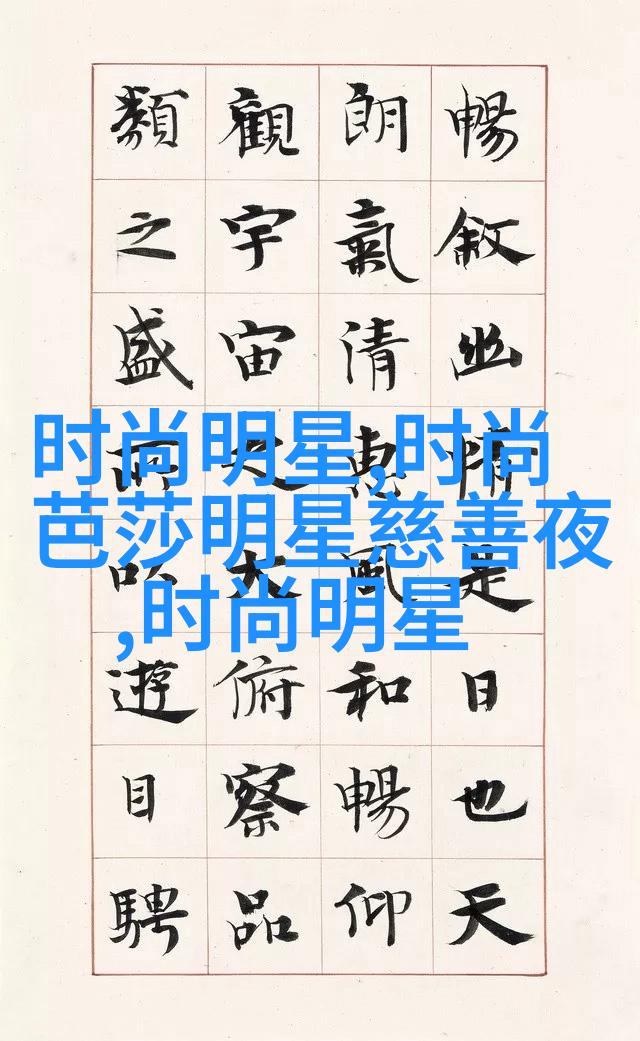 暢敘幽情是日也天
朗氣清惠風和暢仰
觀宇宙之大俯察品
類之盛所以遊目騁
时尚明星,时尚
芭莎明星慈善夜
,时尚明星